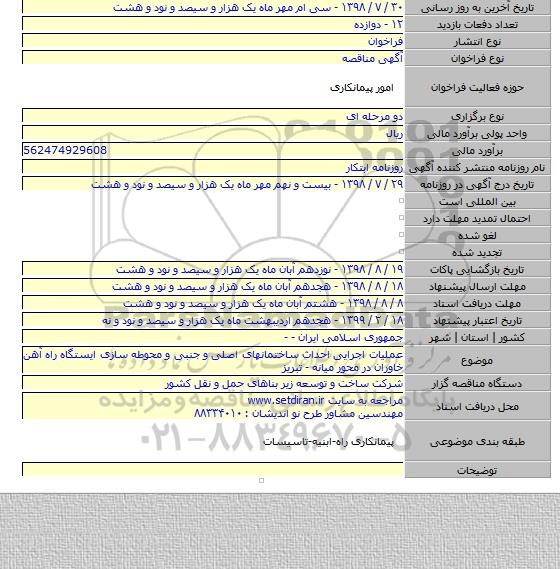 تاریخ آخرین به روز رسانی ۳۰ / ۷ / ۱۳۹۸ - سی ام مهر ماه یک هزار و سیصد و نود و هشت
تعداد دفعات بازدید ۱۲ - دوازده
نوع انتشار فراخوان
نوع فراخوان آگهی مناقصه
حوزه فعالیت فراخوان امور پیمانکاری
نوع برگزاری دو مرحله ای
واحد پولی برآورد مالی ریال
برآورد مالی 562474929608
نام روزنامه منتشر کننده آگهی روزنامه ابتکار
تاریخ درج آگهی در روزنامه ۲۹ / ۷ / ۱۳۹۸ - بیست و نهم مهر ماه یک هزار و سیصد و نود و هشت
بین المللی است
احتمال تمدید مهلت دارد
لغو شده
تجدید شده
تاریخ بازگشایی پاکات ۱۹ / ۸ / ۱۳۹۸ - نوزدهم آبان ماه یک هزار و سیصد و نود و هشت
مهلت ارسال پیشنهاد ۱۸ / ۸ / ۱۳۹۸ - هجدهم آبان ماه یک هزار و سیصد و نود و هشت
مهلت دریافت اسناد ۸ / ۸ / ۱۳۹۸ - هشتم آبان ماه یک هزار و سیصد و نود و هشت
تاریخ اعتبار پیشنهاد ۱۸ / ۲ / ۱۳۹۹ - هجدهم اردیبهشت ماه یک هزار و سیصد و نود و نه
کشور | استان | شهر جمهوری اسلامی ایران - -
موضوع عملیات اجرایی احداث ساختمانهای اصلی و جنبی و محوطه سازی ایستگاه راه آهن
خاوران در محور میانه - تبریز
دستگاه مناقصه گزار شرکت ساخت و توسعه زیر بناهای حمل و نقل کشور
محل دریافت اسناد مراجعه به سایت www.setdiran.ir
مهندسین مشاور طرح نو اندیشان : ۸۸۳۳۴۰۱۰
طبقه بندی موضوعی پیمانکاری راه-ابنیه-تاسیسات
توضیحات
۰۲۱-۸۸۳۴۹۶۷۰-۵